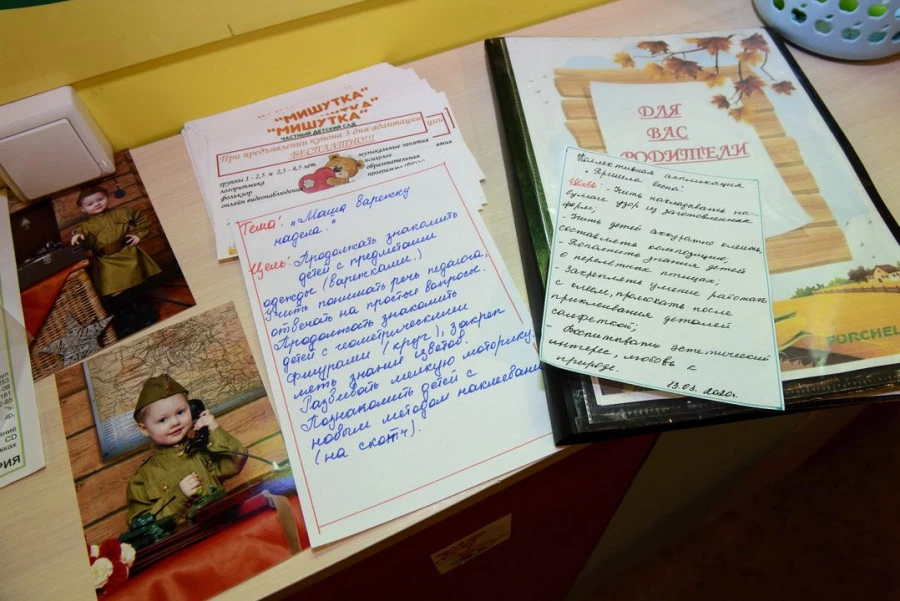 "МИШУТКА"
"МИШУТКА"
ЧАСТНЫЙ ДЕТСКИЙ САД
При предъявлении купона 3 дня адаптации
БЕСПЛАТНО!!!
группы 1 - 2,5 и 2,5 - 4,5 лет
логоритмика
фольклор
онлайн видеонаблюдение
музыкальные занятия
психолог
образовательная
Тема: "Маша варежку
надела."
Цель: Продолжать знакомить
детей с предметами
одежды (варежками.)
учить понимать речь педагога,
отвечать на простые вопросы.
Продолжать знакомить
детей с геометрическими
фигурами (круг), закреп
лять знания цветов.
Развивать мелкую моторику.
Познакомить детей с
новым методом наклеивания
(на скотч).
ДЛЯ
ВАС
РОДИТЕЛИ
Коллективная аппликация
"Пришла весна"
Цель: - Учить накладывать на
бумаге узор из заготовленных
форм,
- Учить детей аккуратно клеить,
составлять композицию;
- Дополнить знания детей
о перелётных птицах;
- Закреплять умение работать
с клеем, промокать после
приклеивания деталей
салфеткой;
- Воспитывать эстетический
интерес, любовь к
природе.
13.03.2020г.
FORCHEL
CD
РИЯ